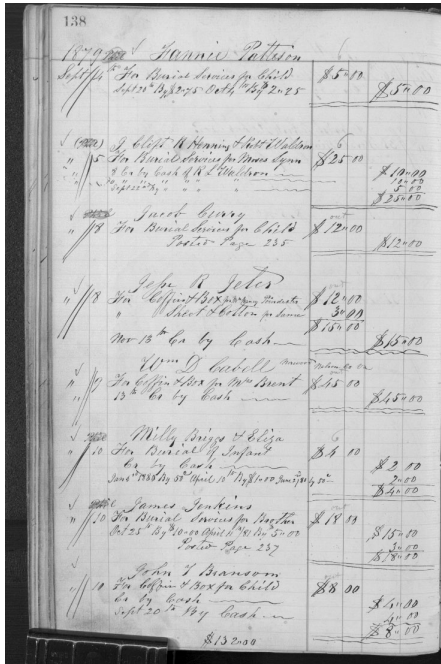 138
1879 Fannie Patteson
Sept 4 For Burial Services for Child $5"00
Sept 20th By $2"75 Oct 4th By 2"25 $5"00
& Robt Waldron
" 5 For Burial Services for Moses Lynn $25 00
& Cr by Cash of R L Waldron $10"00
10"00
Sept 22nd By " " " 5 00
$25"00
Jacob Curry
" 8 For Burial Services for Child $12"00
Posted Page 235 $12"00
R Jeter
" 8 For Coffin & Box for $12"00
" Sheet & Cotton for Same 3"00
$15"00
Nov 13th Cr by Cash $15"00
Wm D Cabell
" 9 For Coffin & Box for Mrs Brent $45 00
13th Cr by Cash $45"00
Milly Briggs & Eliza
" 10 For Burial of Infant $4 00
Cr by Cash $2 00
By 50 April 10th By $1"00 2"00
$4"00
James Jenkins
" 10 For Burial Services for Brother $18 00
Oct 25th By $10"00 April 11th 81 By 5"00 $15"00
3"00
Posted Page 237 $18"00
John T Bransom
" 10 For Coffin & Box for Child $8 00
Cr by Cash $4"00
Sept 20th By Cash 4"00
$8"00
$132"00